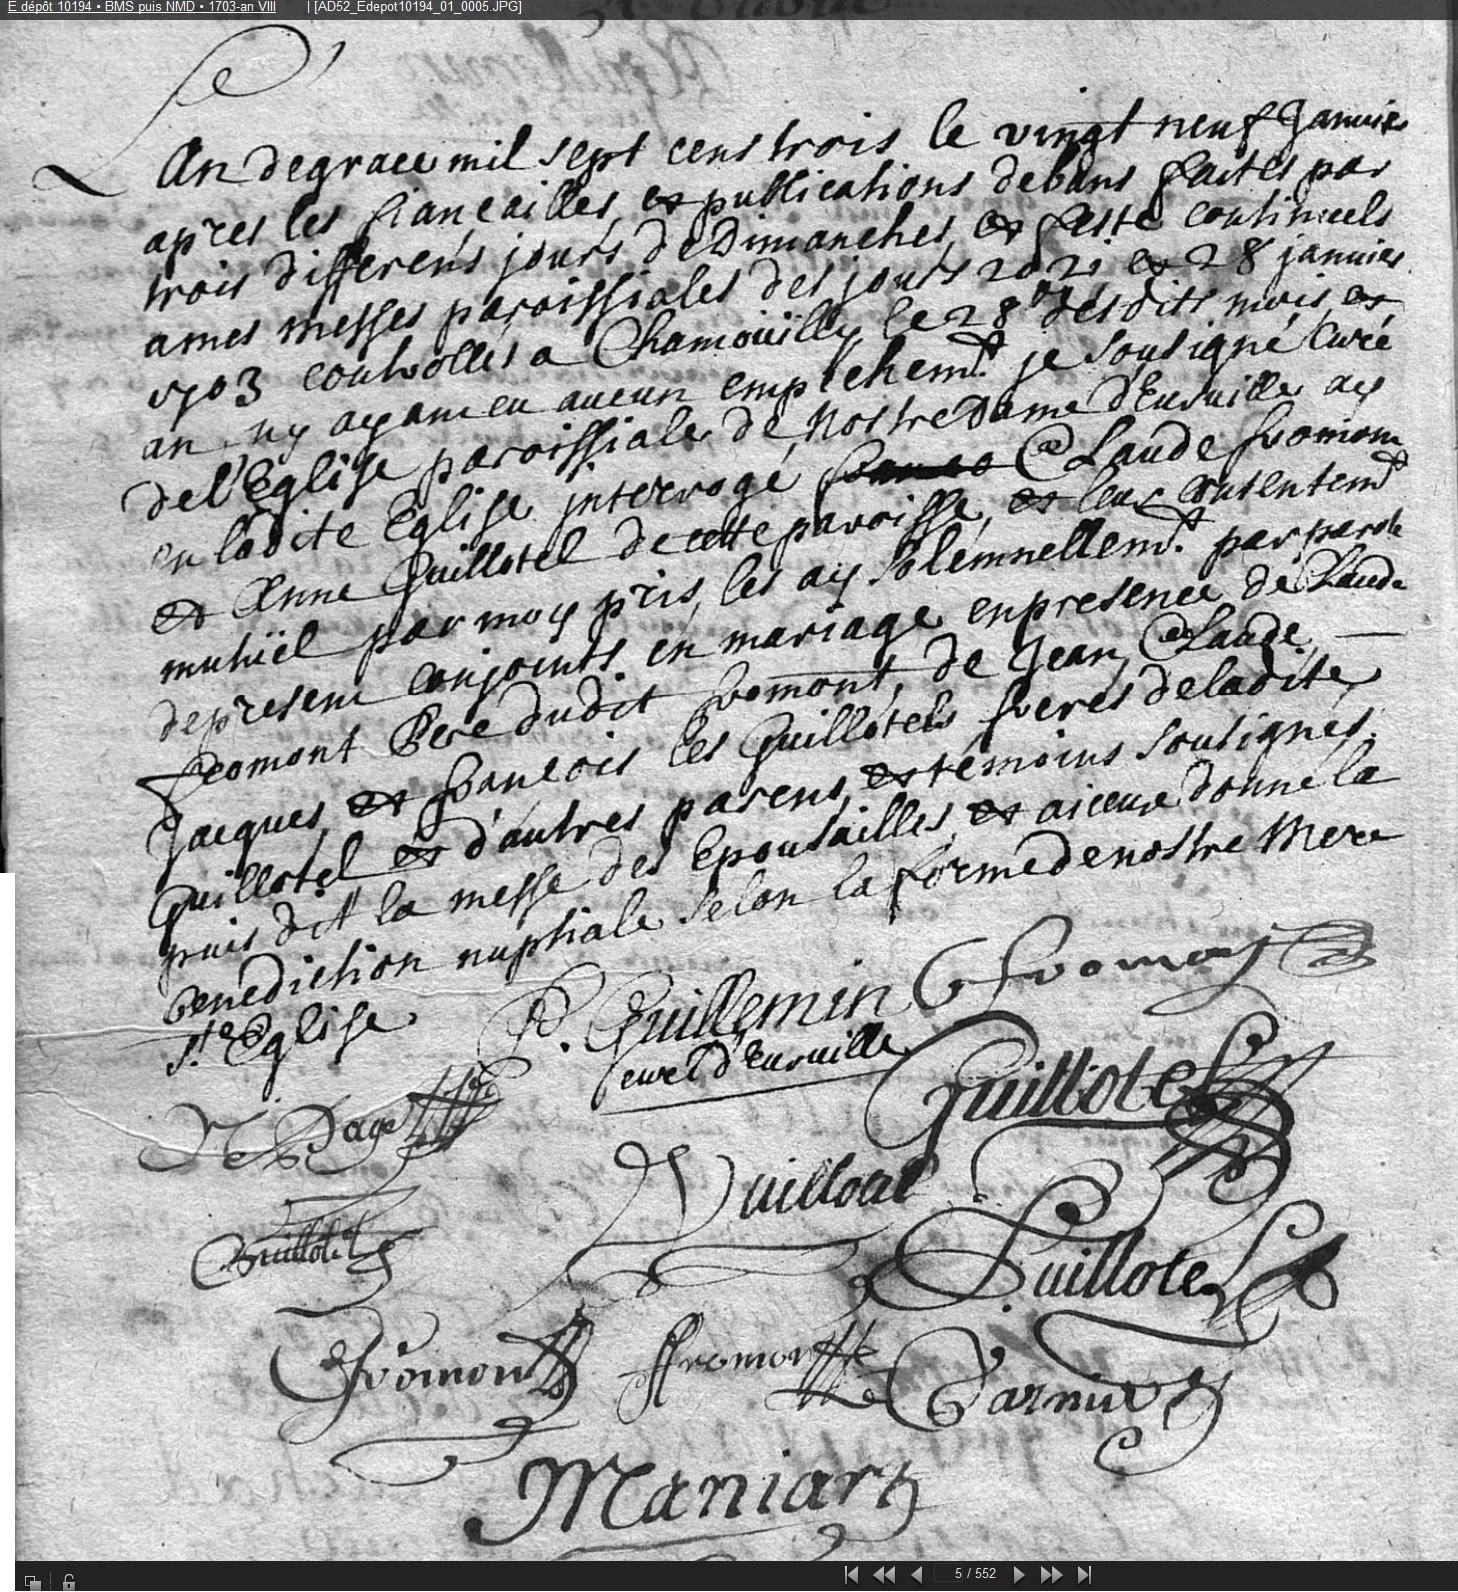 E dépôt 10194 • BMS puis NMD • 1703-an VIII | [AD52_Edepot10194_01_0005.JPG]
L An de grace mil sept cens trois le vingt neuf Janvier
apres les fiançailles et publications de bans faites par
trois differens jours de Dimanches et feste continuels
a mes messes paroissiales des jours 20 21 et 28 janvier
1703 controllés a Chamoüilly le 28me desdits mois et
an n'y ayant eu aucun empechemt. je sousigné Curé
de l'Eglise paroissiale de Nostre Dame d'Eurville ay
en ladite Eglise interrogé Claude fromont
et Anne Guillotel de cette paroisse, et leur consentemt
mutuël par moy pris, les ay solemnellemt. par parole
de present conjoints en mariage en presence de Claude
fromont Pere dudit fromont, de Jean, Claude,
Jacques, et francois les Guillotels freres de ladite
Guillotel et d'autres parens, et témoins sousignés.
puis dit la messe des Epousailles, et a iceux donné la
benediction nuptiale selon la forme de nostre Mere
Ste Eglise.
P. Guillemin
curé d'Eurville
C fromont
Guillotel
Guillotel
Guillotel
fromont
ffromont
Maniart
5 / 552